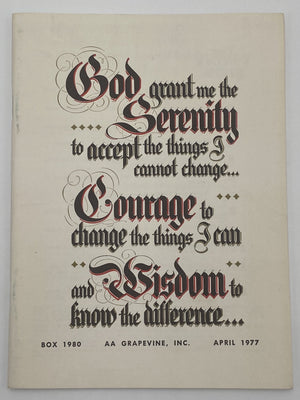 God grant me the
Serenity
to accept the things I
cannot change...
Courage to
change the things I can
and Wisdom to
know the difference...
BOX 1980 AA GRAPEVINE, INC. APRIL 1977